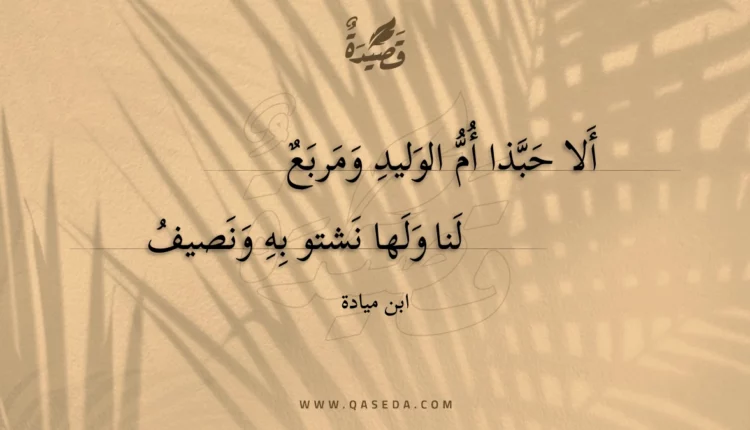 قَصِيدَةٌ
أَلا حَبَّذا أُمُّ الوَليدِ وَمَربَعٌ
لَنا وَلَها نَشتو بِهِ وَنَصيفُ
ابن ميادة
WWW.QASEDA.COM